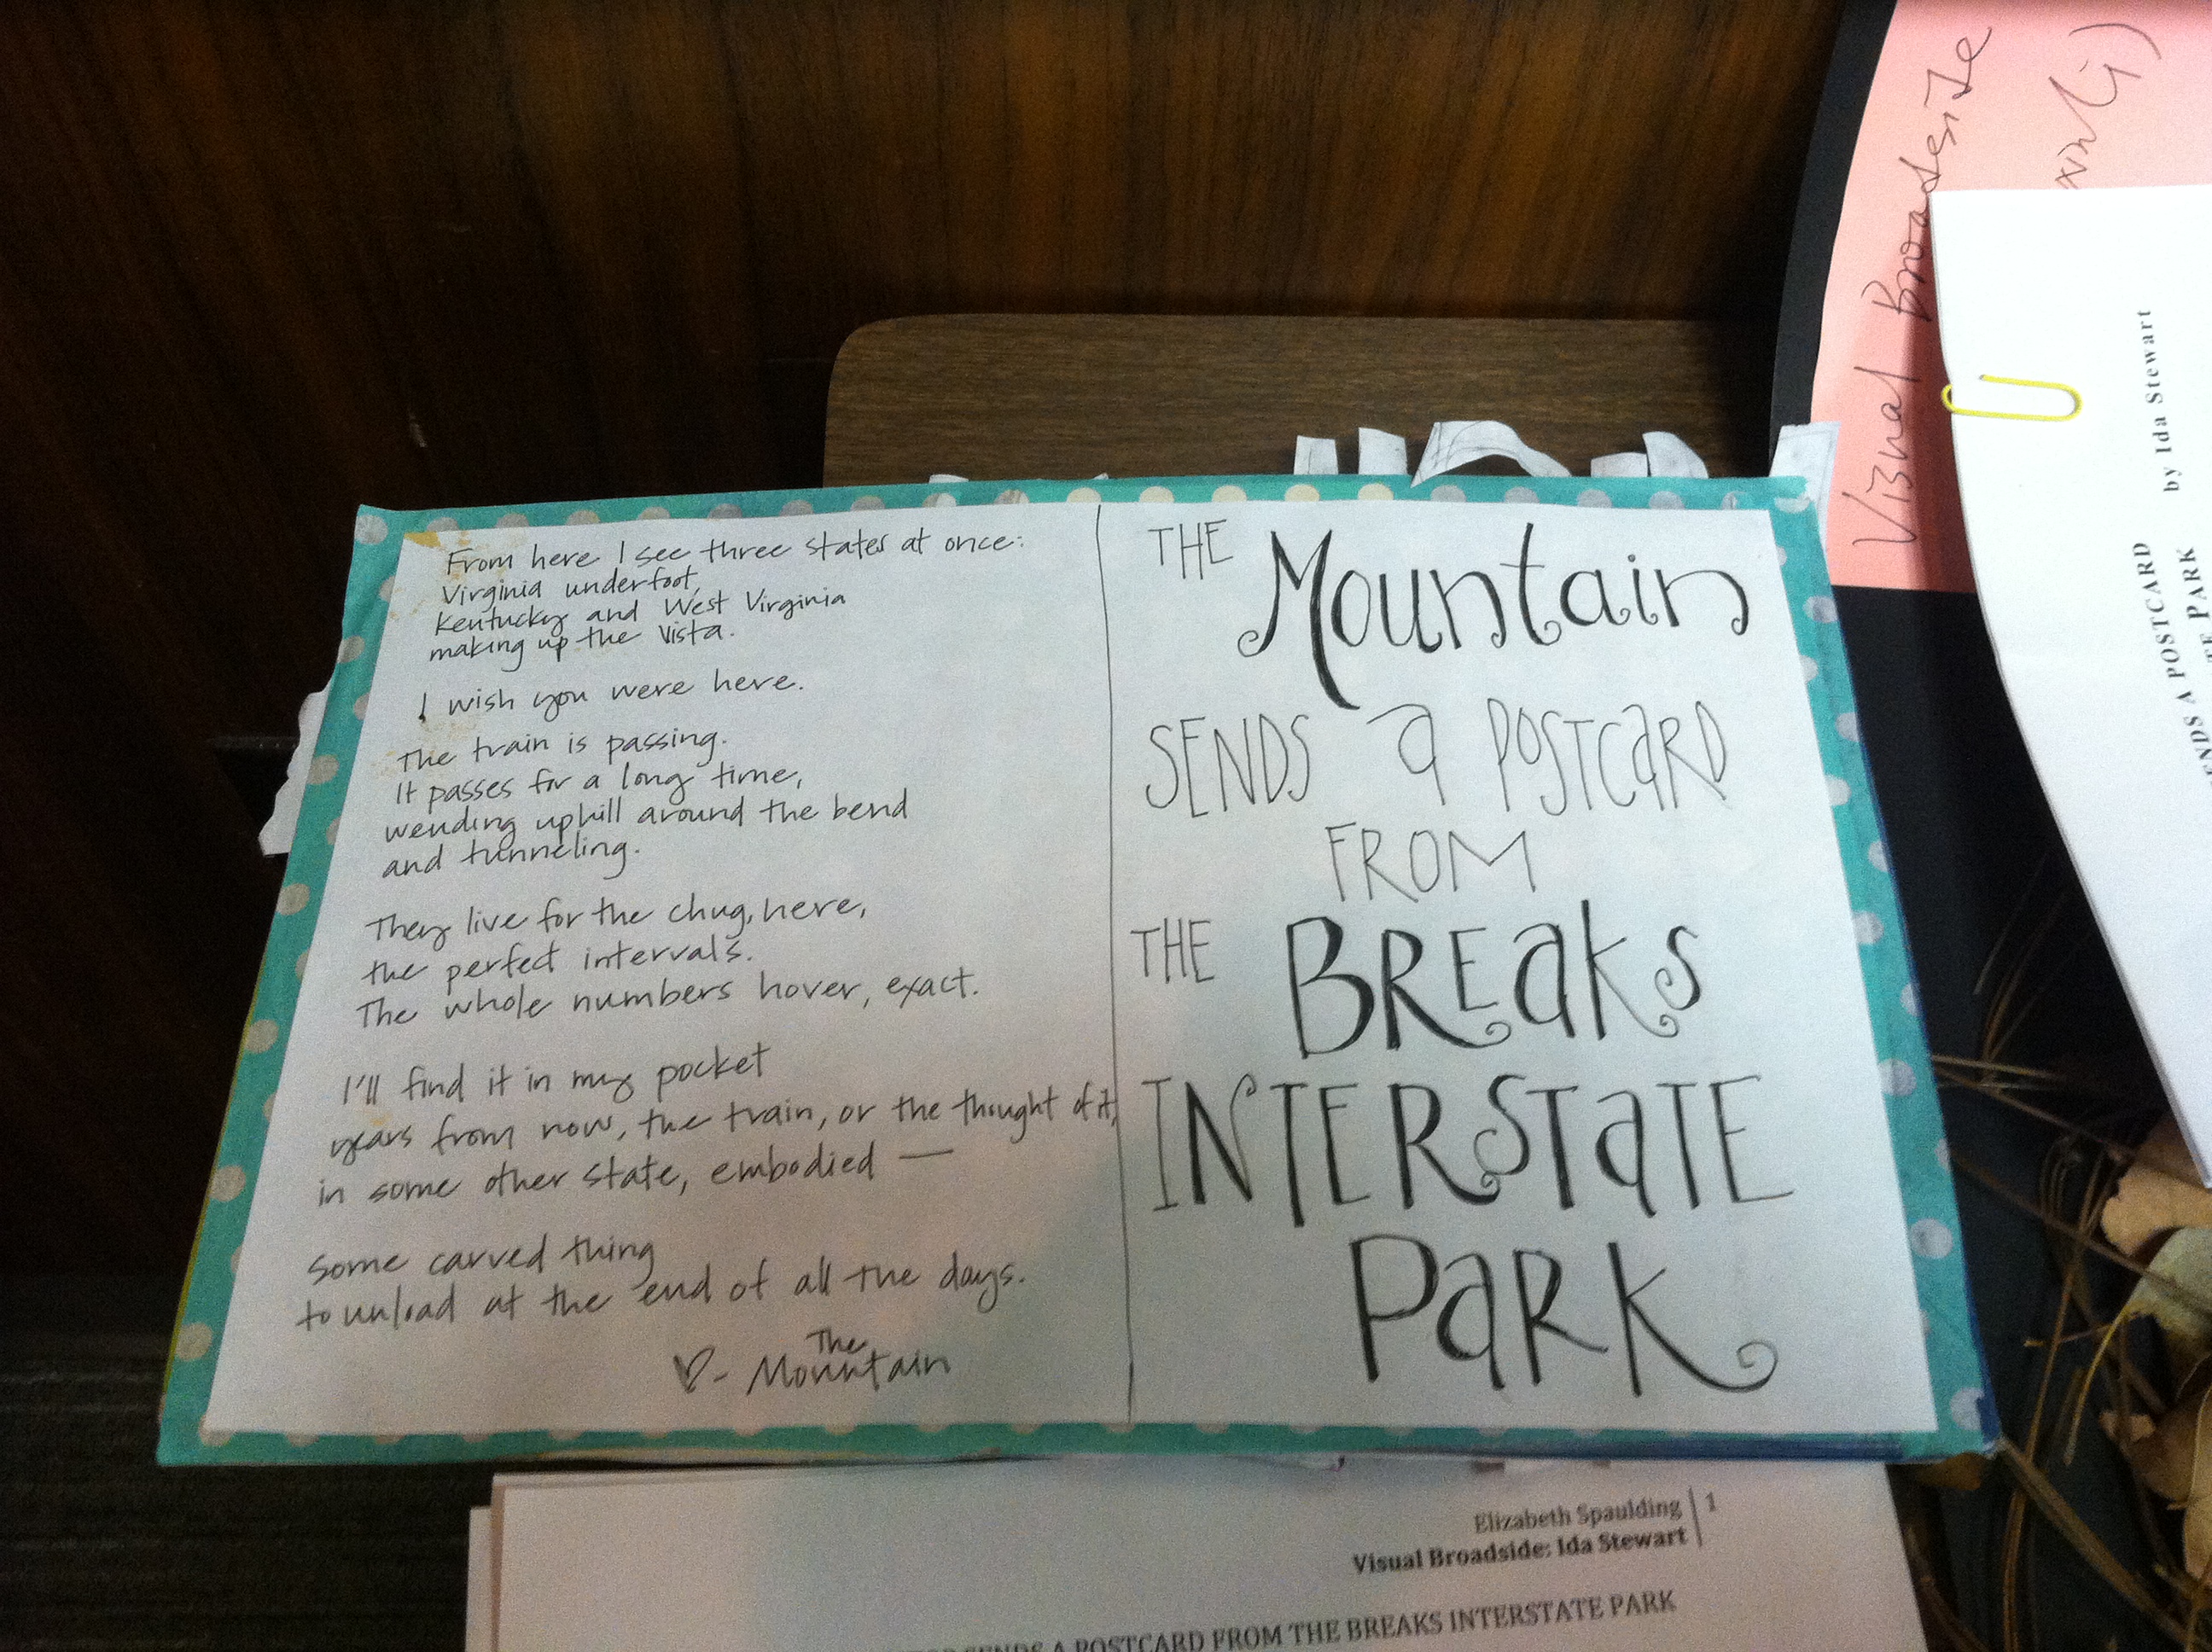 From here I see three states at once:
Virginia underfoot,
Kentucky and West Virginia
making up the vista.
I wish you were here.
The train is passing.
It passes for a long time,
wending uphill around the bend
and tunneling.
They live for the chug, here,
the perfect intervals.
The whole numbers hover, exact.
I'll find it in my pocket
years from now, the train, or the thought of it,
in some other state, embodied —
some carved thing
to unload at the end of all the days.
♡- The Mountain
THE Mountain
SENDS a POSTCaRD
FROM
THE BREaKS
INTERSTaTE
PaRK
Visual Broadside
by Ida Stewart
A POSTCARD
PARK
Elizabeth Spaulding | 1
Visual Broadside: Ida Stewart
SENDS A POSTCARD FROM THE BREAKS INTERSTATE PARK